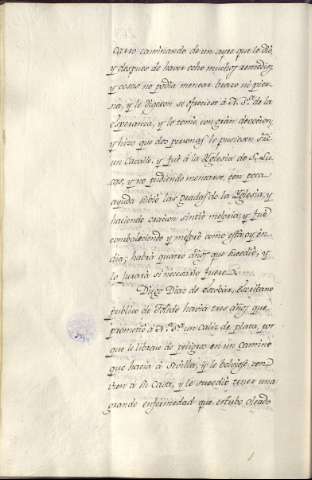 carro caminando de un ayre que le dio,
y despues de haver echo muchos remedios,
y como no podia menear brazo ni pier-
na, y le dixeron se ofreciese à N. S.ª de la
Esperanza, y lo tomò con gran devocion,
y hizo que dos personas le pusiesen en
un Cavallo, y fuè à la Yglesia de S. Lu-
cas, y no pudiendo menearse, con poca
ayuda subio las gradas de la Yglesia, y
haciendo oracion sintiò mejoria, y fuè
combaleciendo y mejorò como està oy en
dia; habrà quatro años que sucediò, y
lo jurarà si necesario fuere.
Diego Diaz de Escobar, Escribano
publico de Toledo havia tres años que
prometiò à N. S.ª un caliz de plata, por
que le librase de peligros en un camino
que hacia à Sevilla, y le bolviese con
bien à su Casa, y le sucediò tener una
grande enfermedad que estubo oleado